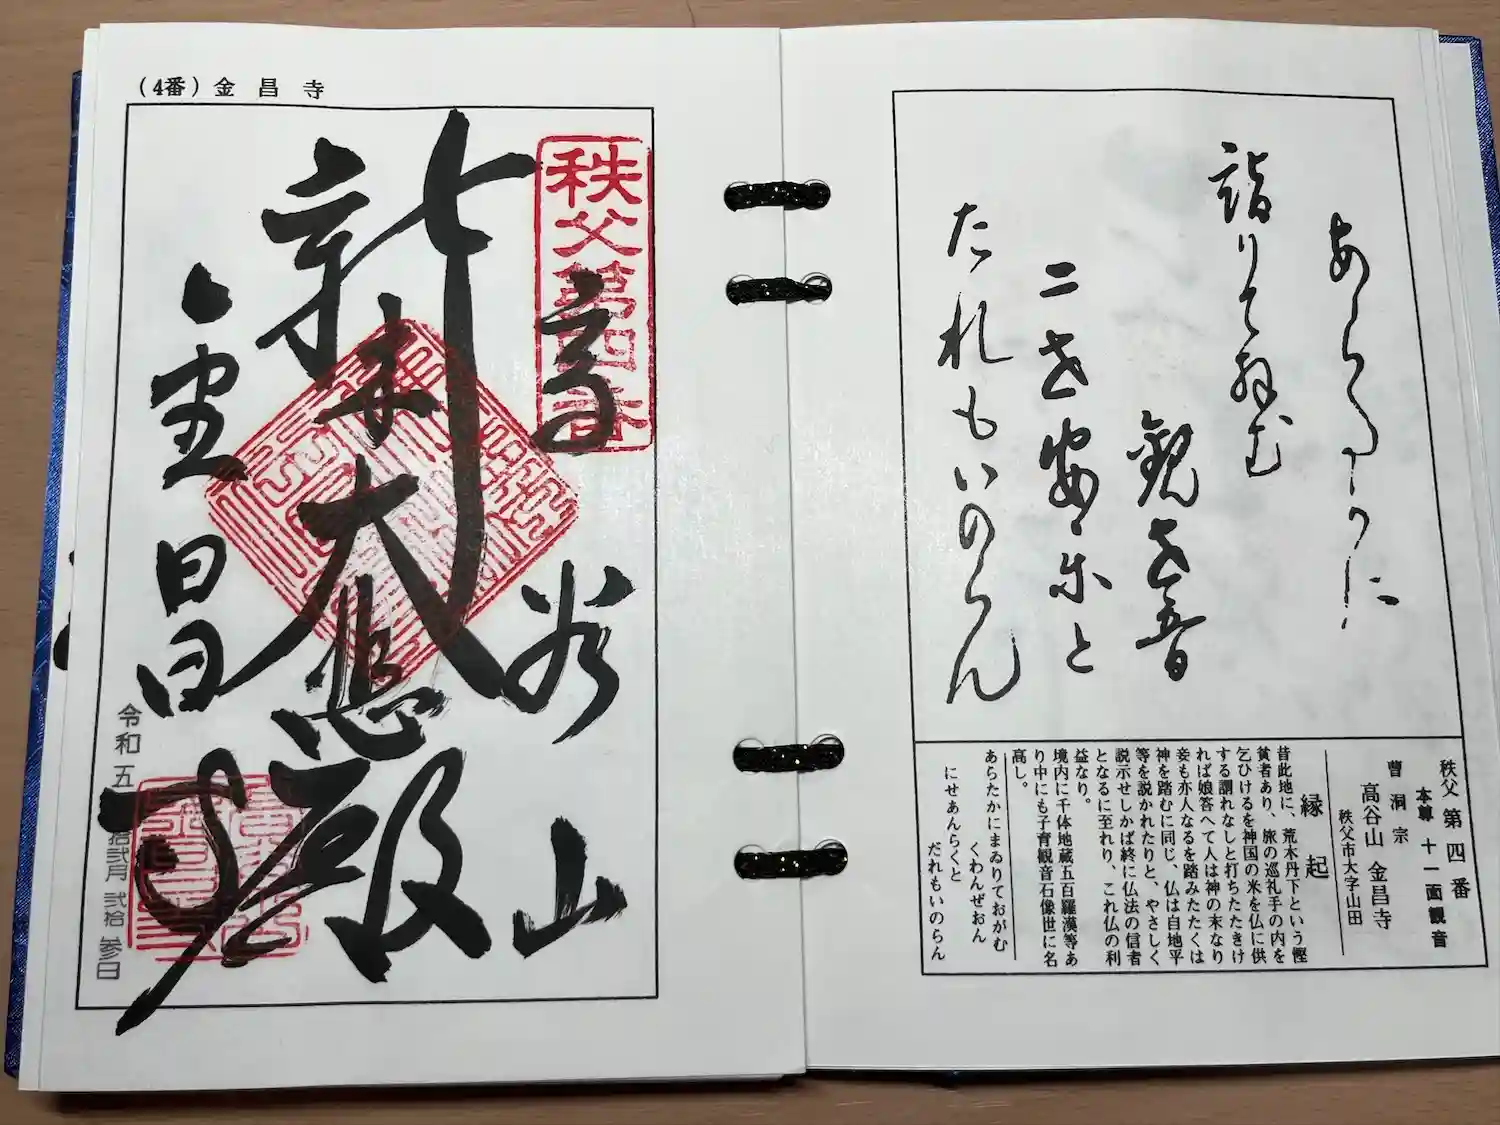 詣りて
観世音
二世安楽と
たれもいのらん
秩父第四番
本尊 十一面観音
曹洞宗
高谷山 金昌寺
秩父市大字山田
縁起
昔此地に、荒木丹下という慳
貧者あり、旅の巡礼手の内を
乞ひけるを神国の米を仏に供
する謂れなしと打ちたたきけ
れば娘答へて人は神の末なり
妾も亦人なるを踏みたたくは
神を踏むに同じ、仏は自地平
等を説かれたりと、やさしく
説示せしかば終に仏法の信者
となるに至れり、これ仏の利
益なり。
境内に千体地蔵五百羅漢等あ
り中にも子育観音石像世に名
高し。
あらたかにまゐりておがむ
くわんぜおん
にせあんらくと
だれもいのらん
(4番)金昌寺
秩父第四番
高谷山
新木大悲殿
金昌寺
令和五 拾弐月 弐拾参日